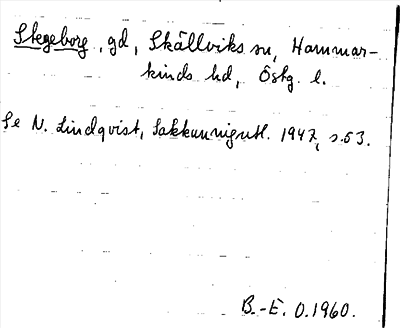 Stegeborg, gd, Skällviks sn, Hammar-
kinds hd, Östg. l.
Se N. Lindqvist, Sakkunnigutl. 1947, s.53.
B.-E. O.1960.